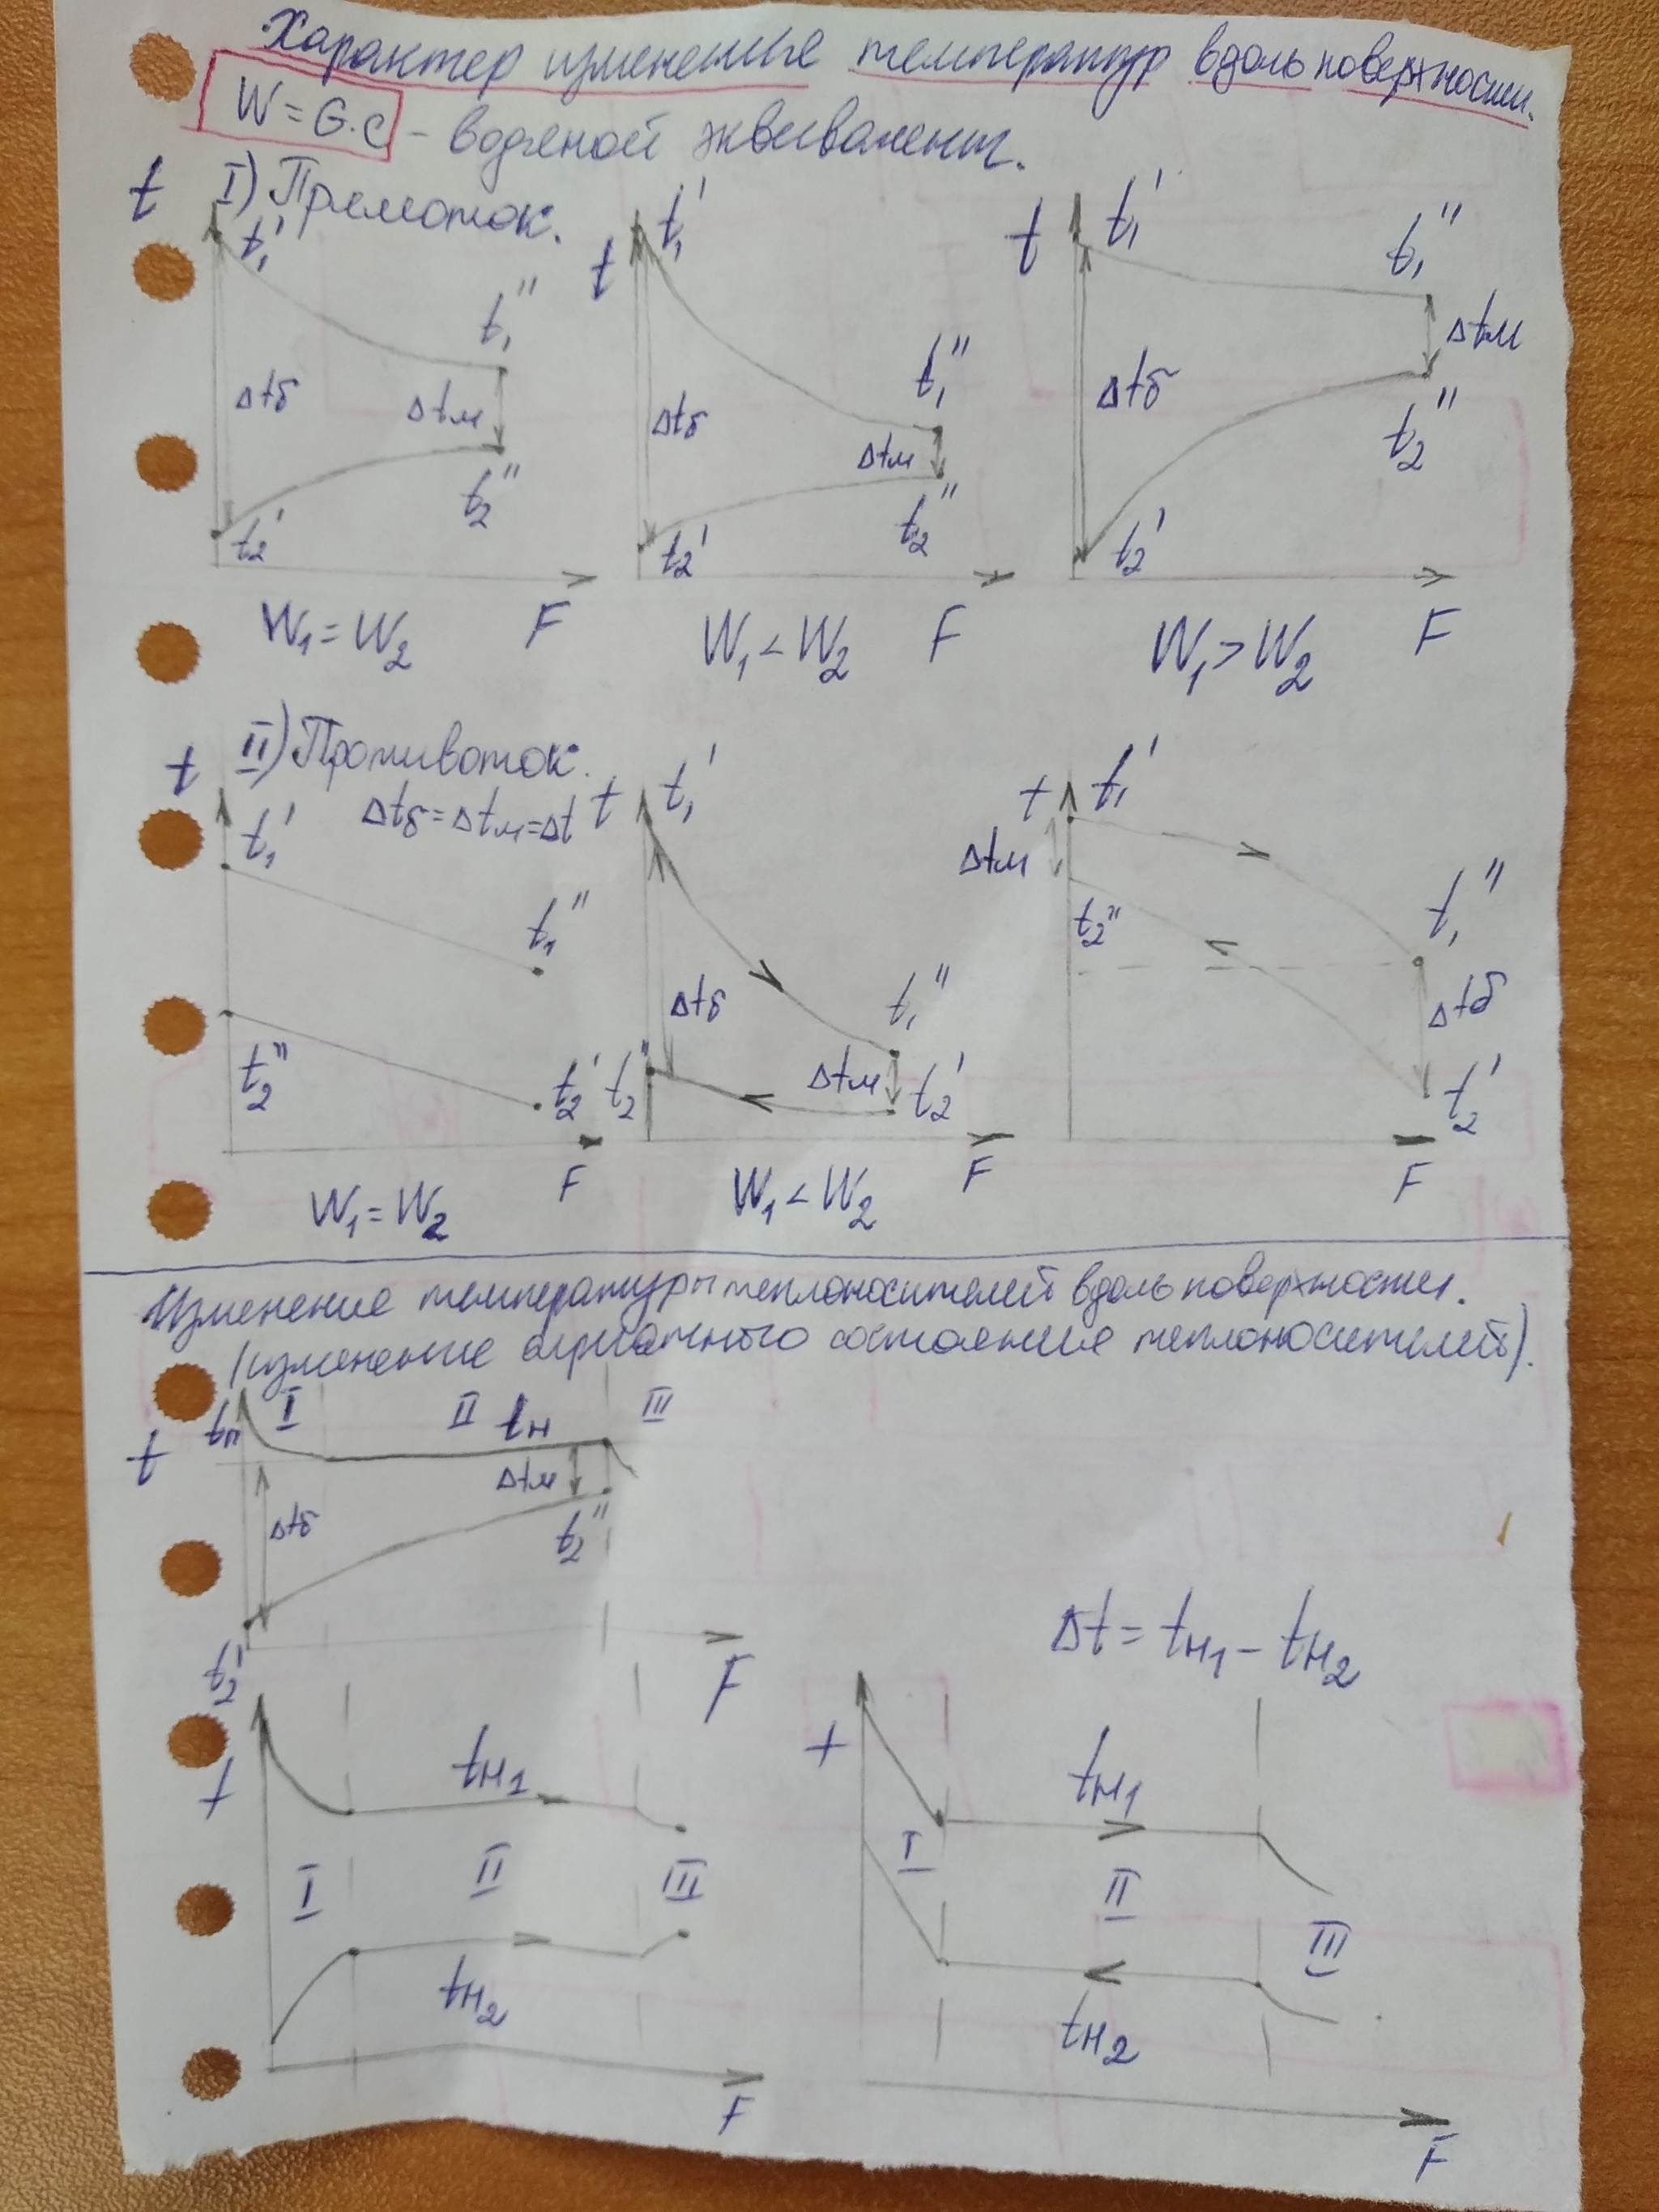 Характер изменение температур вдоль поверхности.
W = G·c - водяной эквивалент.
I) Прямоток.
t t₁' t₁'' Δtб Δtм t₂' t₂'' F
W₁ = W₂
t t₁' t₁'' Δtб Δtм t₂' t₂'' F
W₁ < W₂
t t₁' t₁'' Δtб Δtм t₂' t₂'' F
W₁ > W₂
II) Противоток.
Δtб = Δtм = Δt
t t₁' t₁'' t₂'' t₂' F
W₁ = W₂
t t₁' t₁'' Δtб Δtм t₂'' t₂' F
W₁ < W₂
t t₁' Δtм t₁'' t₂'' Δtб t₂' F
Изменение температуры теплоносителей вдоль поверхности.
(изменение агрегатного состояния теплоносителей).
t tп I II tн III
Δtб Δtм t₂'' t₂' F
Δt = tн₁ - tн₂
t tн₁ I II III tн₂ F
t tн₁ I II III tн₂ F